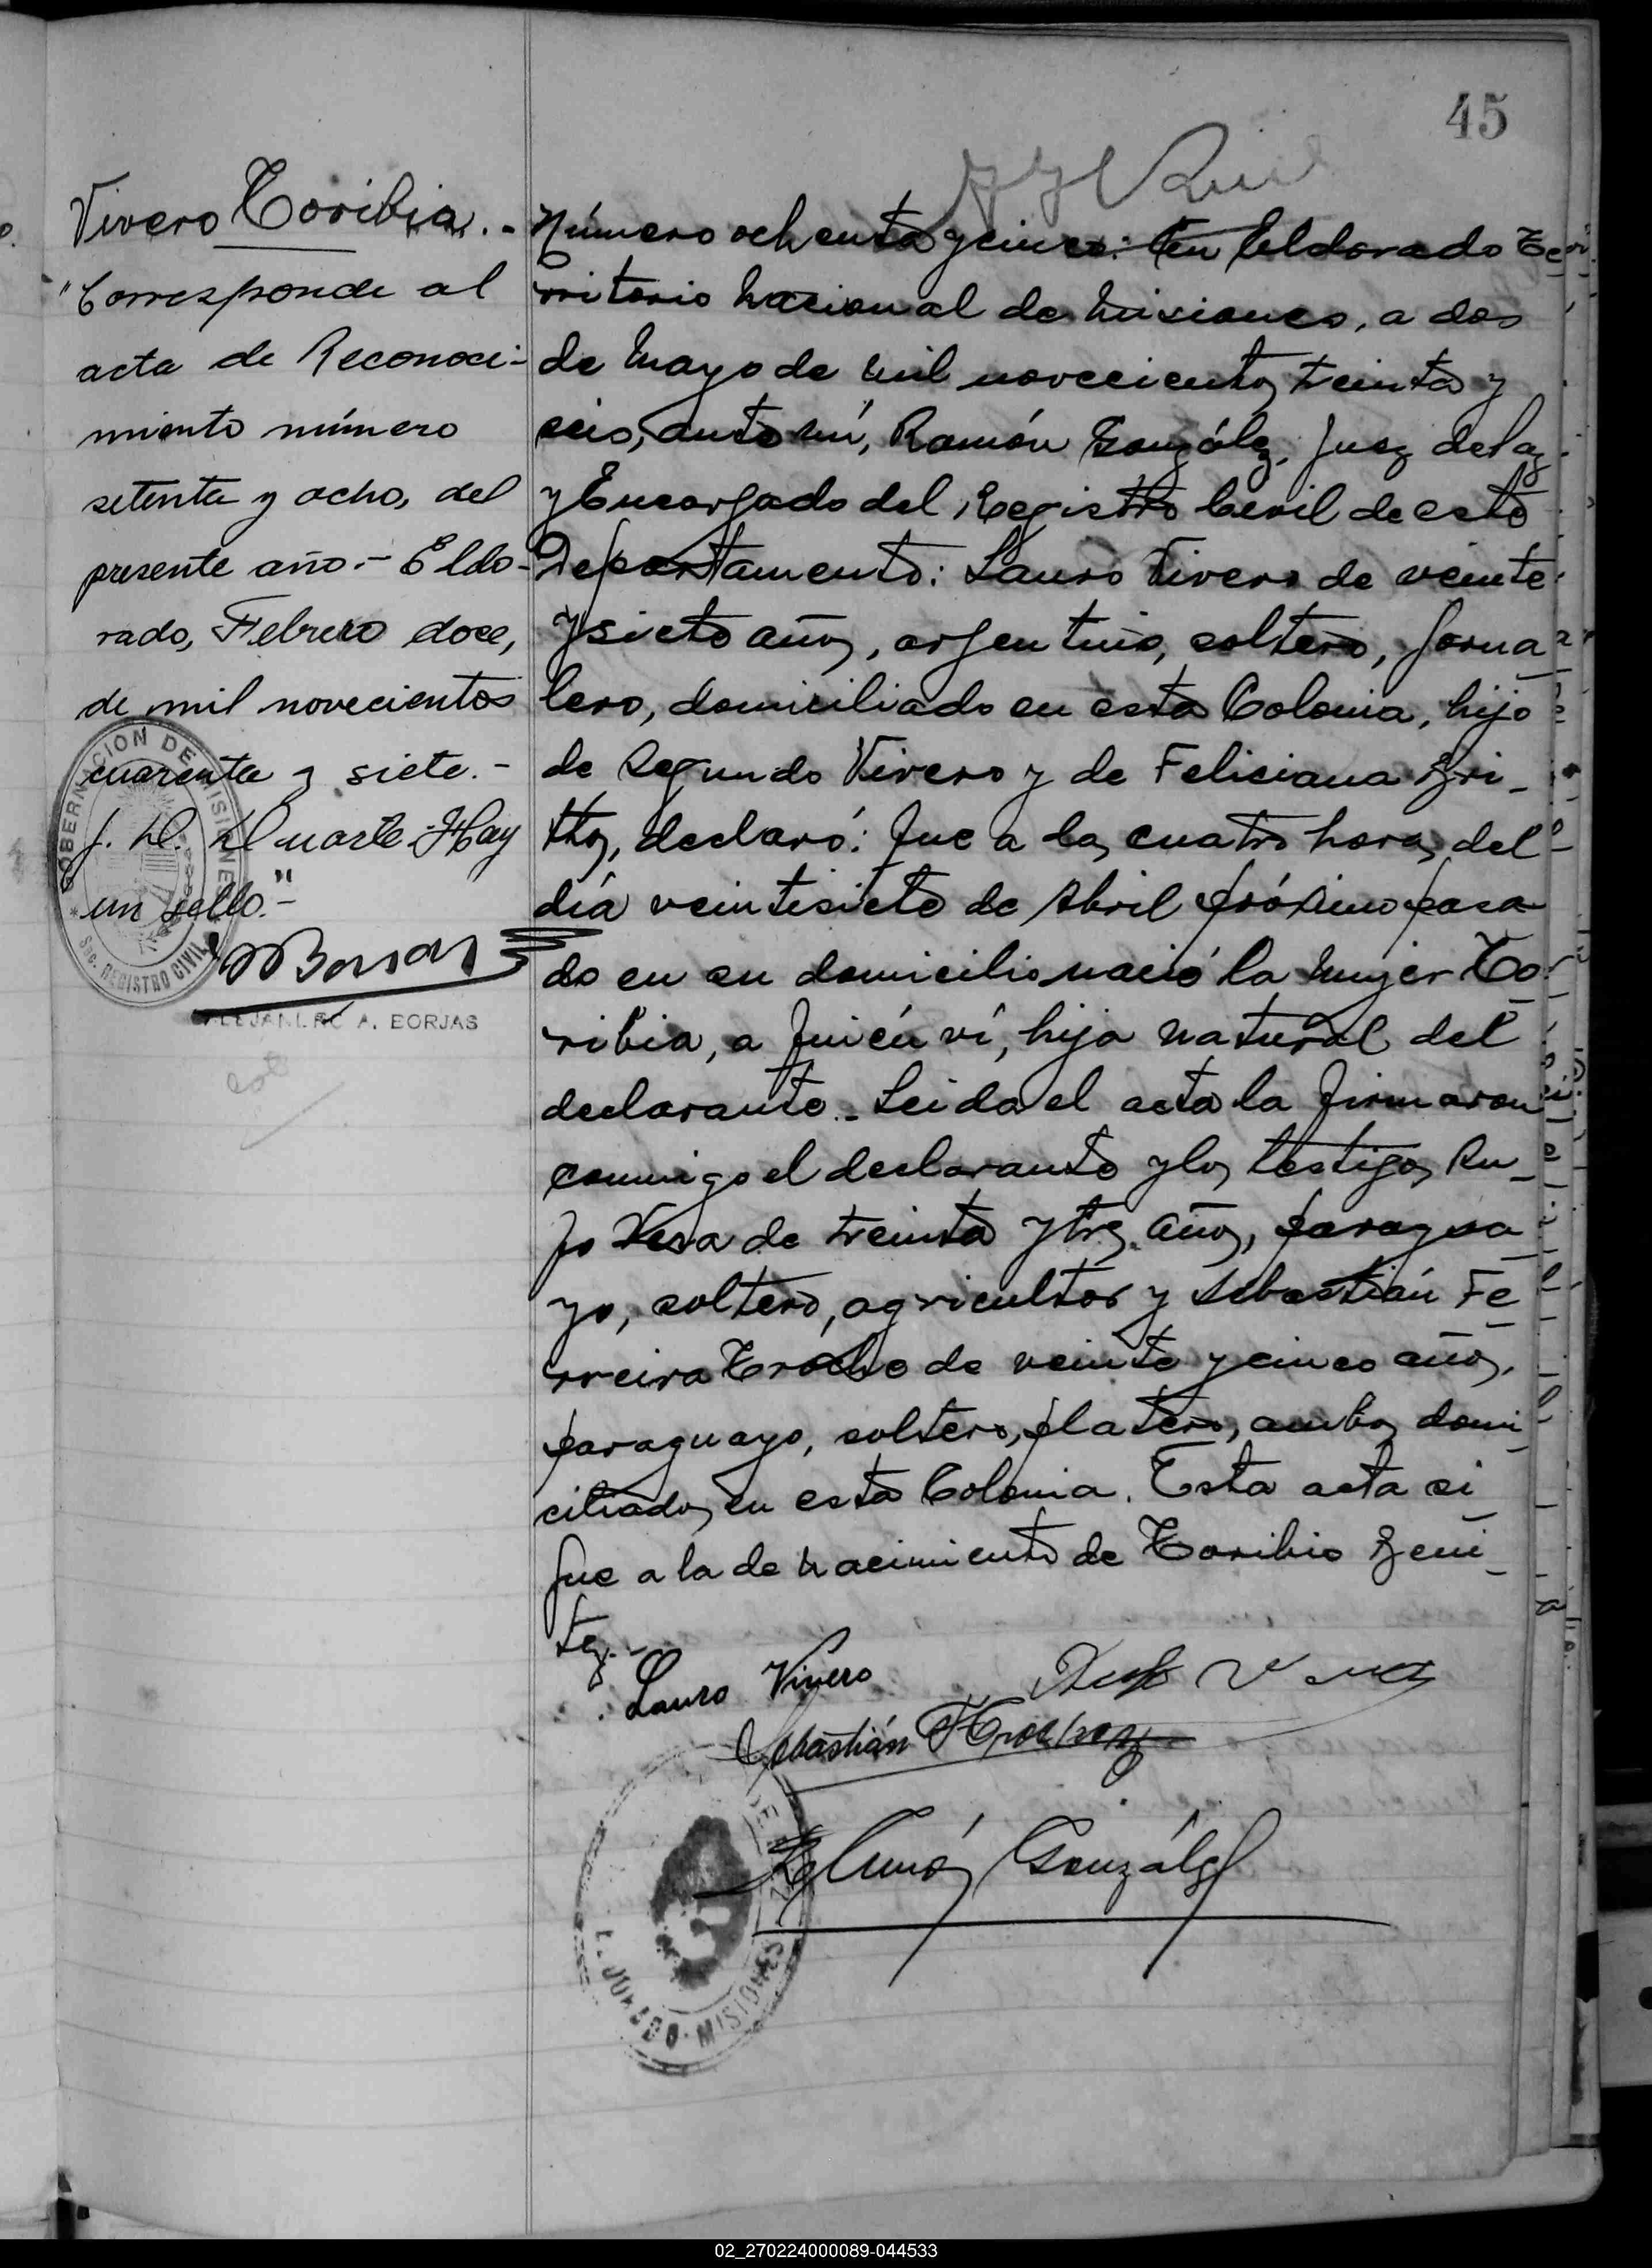 45
Vivero Toribia.-
"Corresponde al
acta de Reconoci-
miento número
setenta y ocho, del
presente año.- Eldo-
rado, Febrero doce,
de mil novecientos
cuarenta y siete.-
Duarte. Hay
un sello."-
GOBERNACION DE MISIONES
Sec. REGISTRO CIVIL
ALEJANDRO A. BORJAS
Número ochenta y cinco: En Eldorado Te
rritorio Nacional de Misiones, a dos
de Mayo de mil novecientos treinta y
seis, ante mí, Ramón González, Juez de Paz
y Encargado del Registro Civil de este
Departamento: Lauro Vivero de veinte
y siete años, argentino, soltero, jorna
lero, domiciliado en esta Colonia, hijo
de Segundo Vivero y de Feliciana Bri-
tez, declaró: Que a las cuatro horas del
día veintisiete de Abril próximo pasa
do en su domicilio nació la mujer To
ribia, a quién ví, hija natural del
declarante.- Leida el acta la firmaron
conmigo el declarante y los testigos Ru-
fo Vera de treinta y tres años, paragua
yo, soltero, agricultor y Sebastián Fe
rreira Troche de veinte y cinco años,
paraguayo, soltero, platero, ambos domi
ciliados en esta Colonia. Esta acta si
gue a la de nacimiento de Toribio Beni-
tez.-
Lauro Vivero
Sebastián
Ramón González
MISIONES